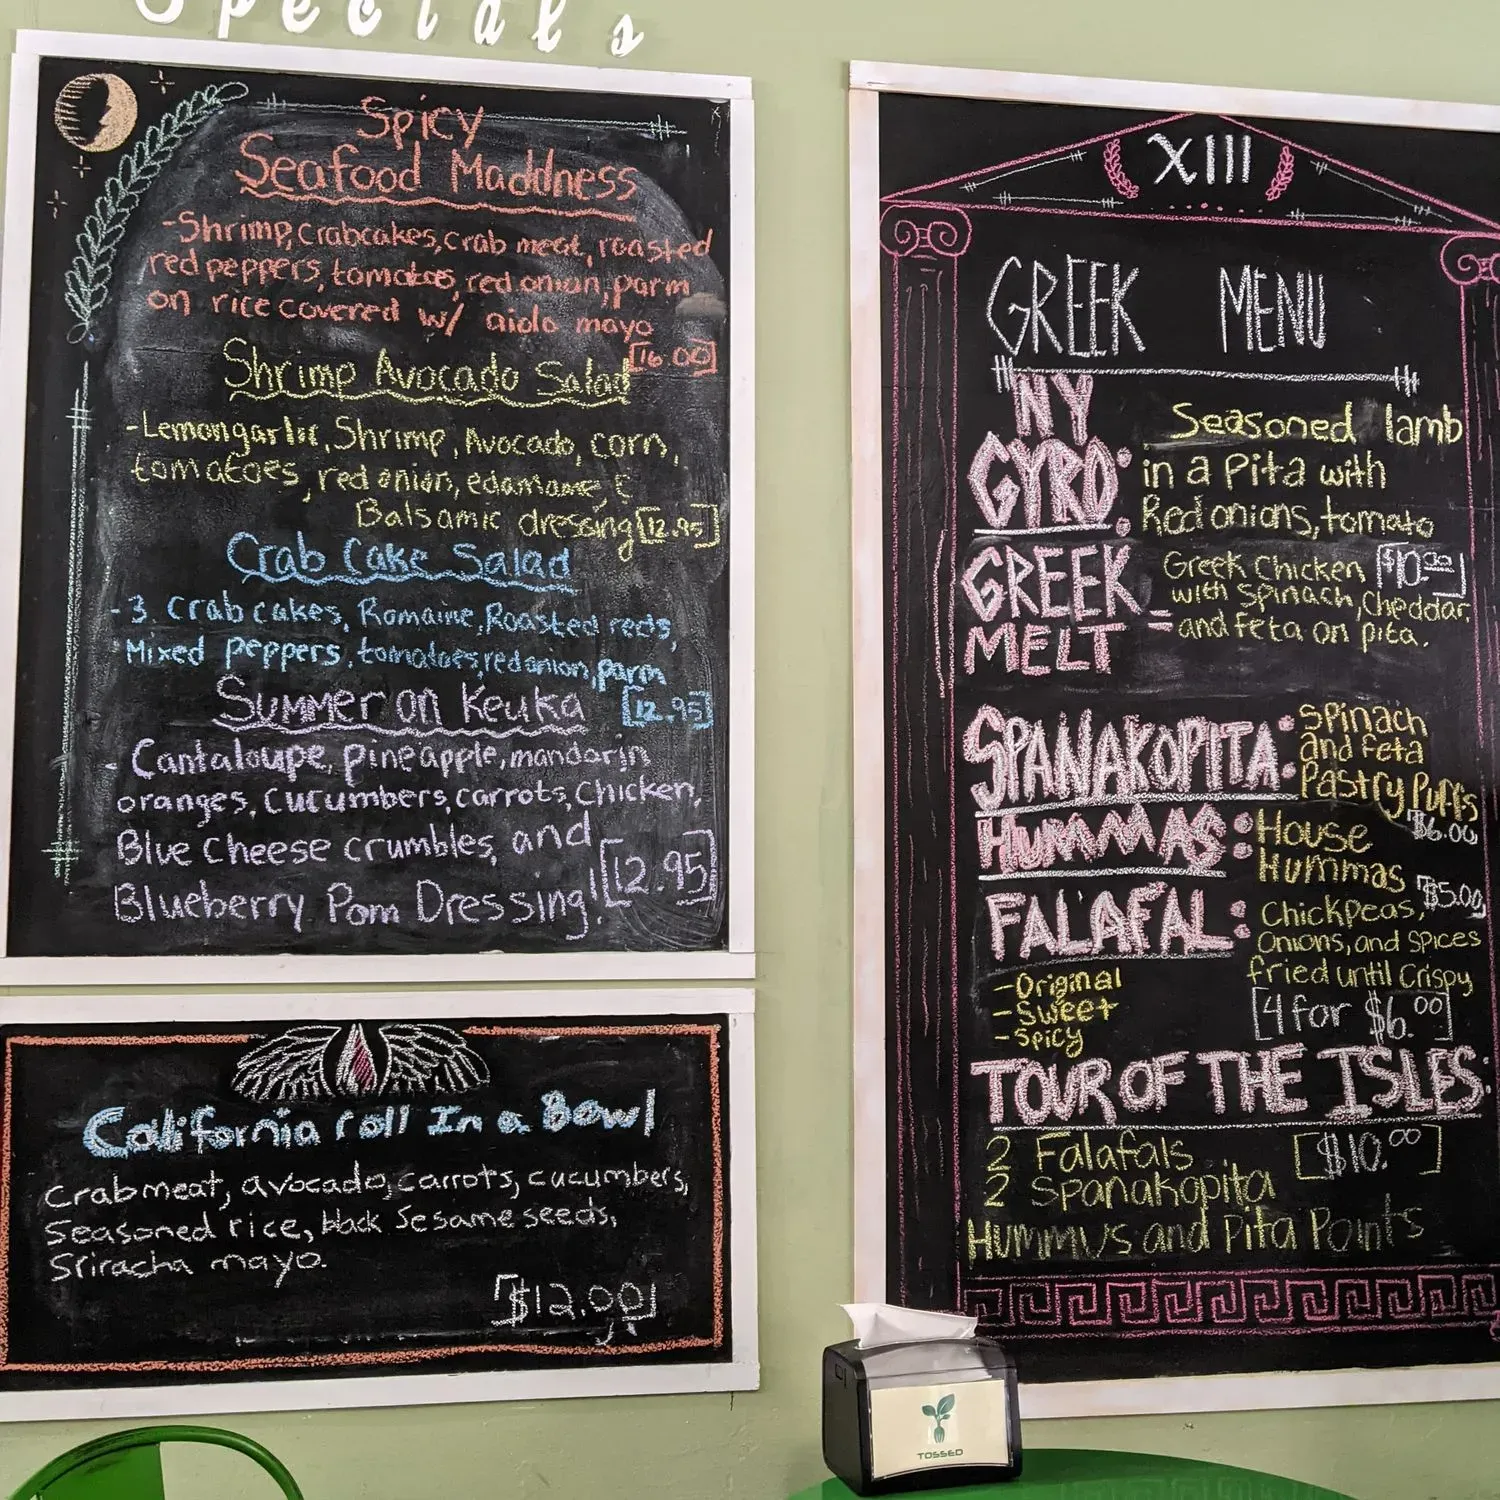 Specials
Spicy
Seafood Maddness
-Shrimp, crabcakes, crab meat, roasted
red peppers, tomatoes, red onion, parm
on rice covered w/ aiolo mayo
[16.00]
Shrimp Avocado Salad
-Lemongarlic, Shrimp, Avocado, corn,
tomatoes, red onion, edamame, &
Balsamic dressing [12.95]
Crab Cake Salad
-3. crab cakes, Romaine, Roasted reds,
Mixed peppers, tomatoes, red onion, parm
[12.95]
Summer on Keuka
- Cantaloupe, pineapple, mandorin
oranges, cucumbers, carrots, Chicken,
Blue cheese crumbles, and
Blueberry Pom Dressing! [12.95]
California roll In a Bowl
Crabmeat, avocado, carrots, cucumbers,
Seasoned rice, black Sesame seeds,
Sriracha mayo.
[$12.00]
XIII
GREEK MENU
NY
GYRO:
Seasoned lamb
in a Pita with
Red onions, tomato
[$10.00]
GREEK
MELT
Greek Chicken
with spinach, Cheddar,
and feta on pita.
SPANAKOPITA:
Spinach
and feta
Pastry Puffs
$6.00
HUMMAS:
House
Hummas
$5.00
FALAFAL:
Chickpeas,
Onions, and spices
fried until crispy
-Original
-Sweet
-Spicy
[4 for $6.00]
TOUR OF THE ISLES:
2 Falafals
[$10.00]
2 Spanakopita
Hummus and Pita Points
TOSSED